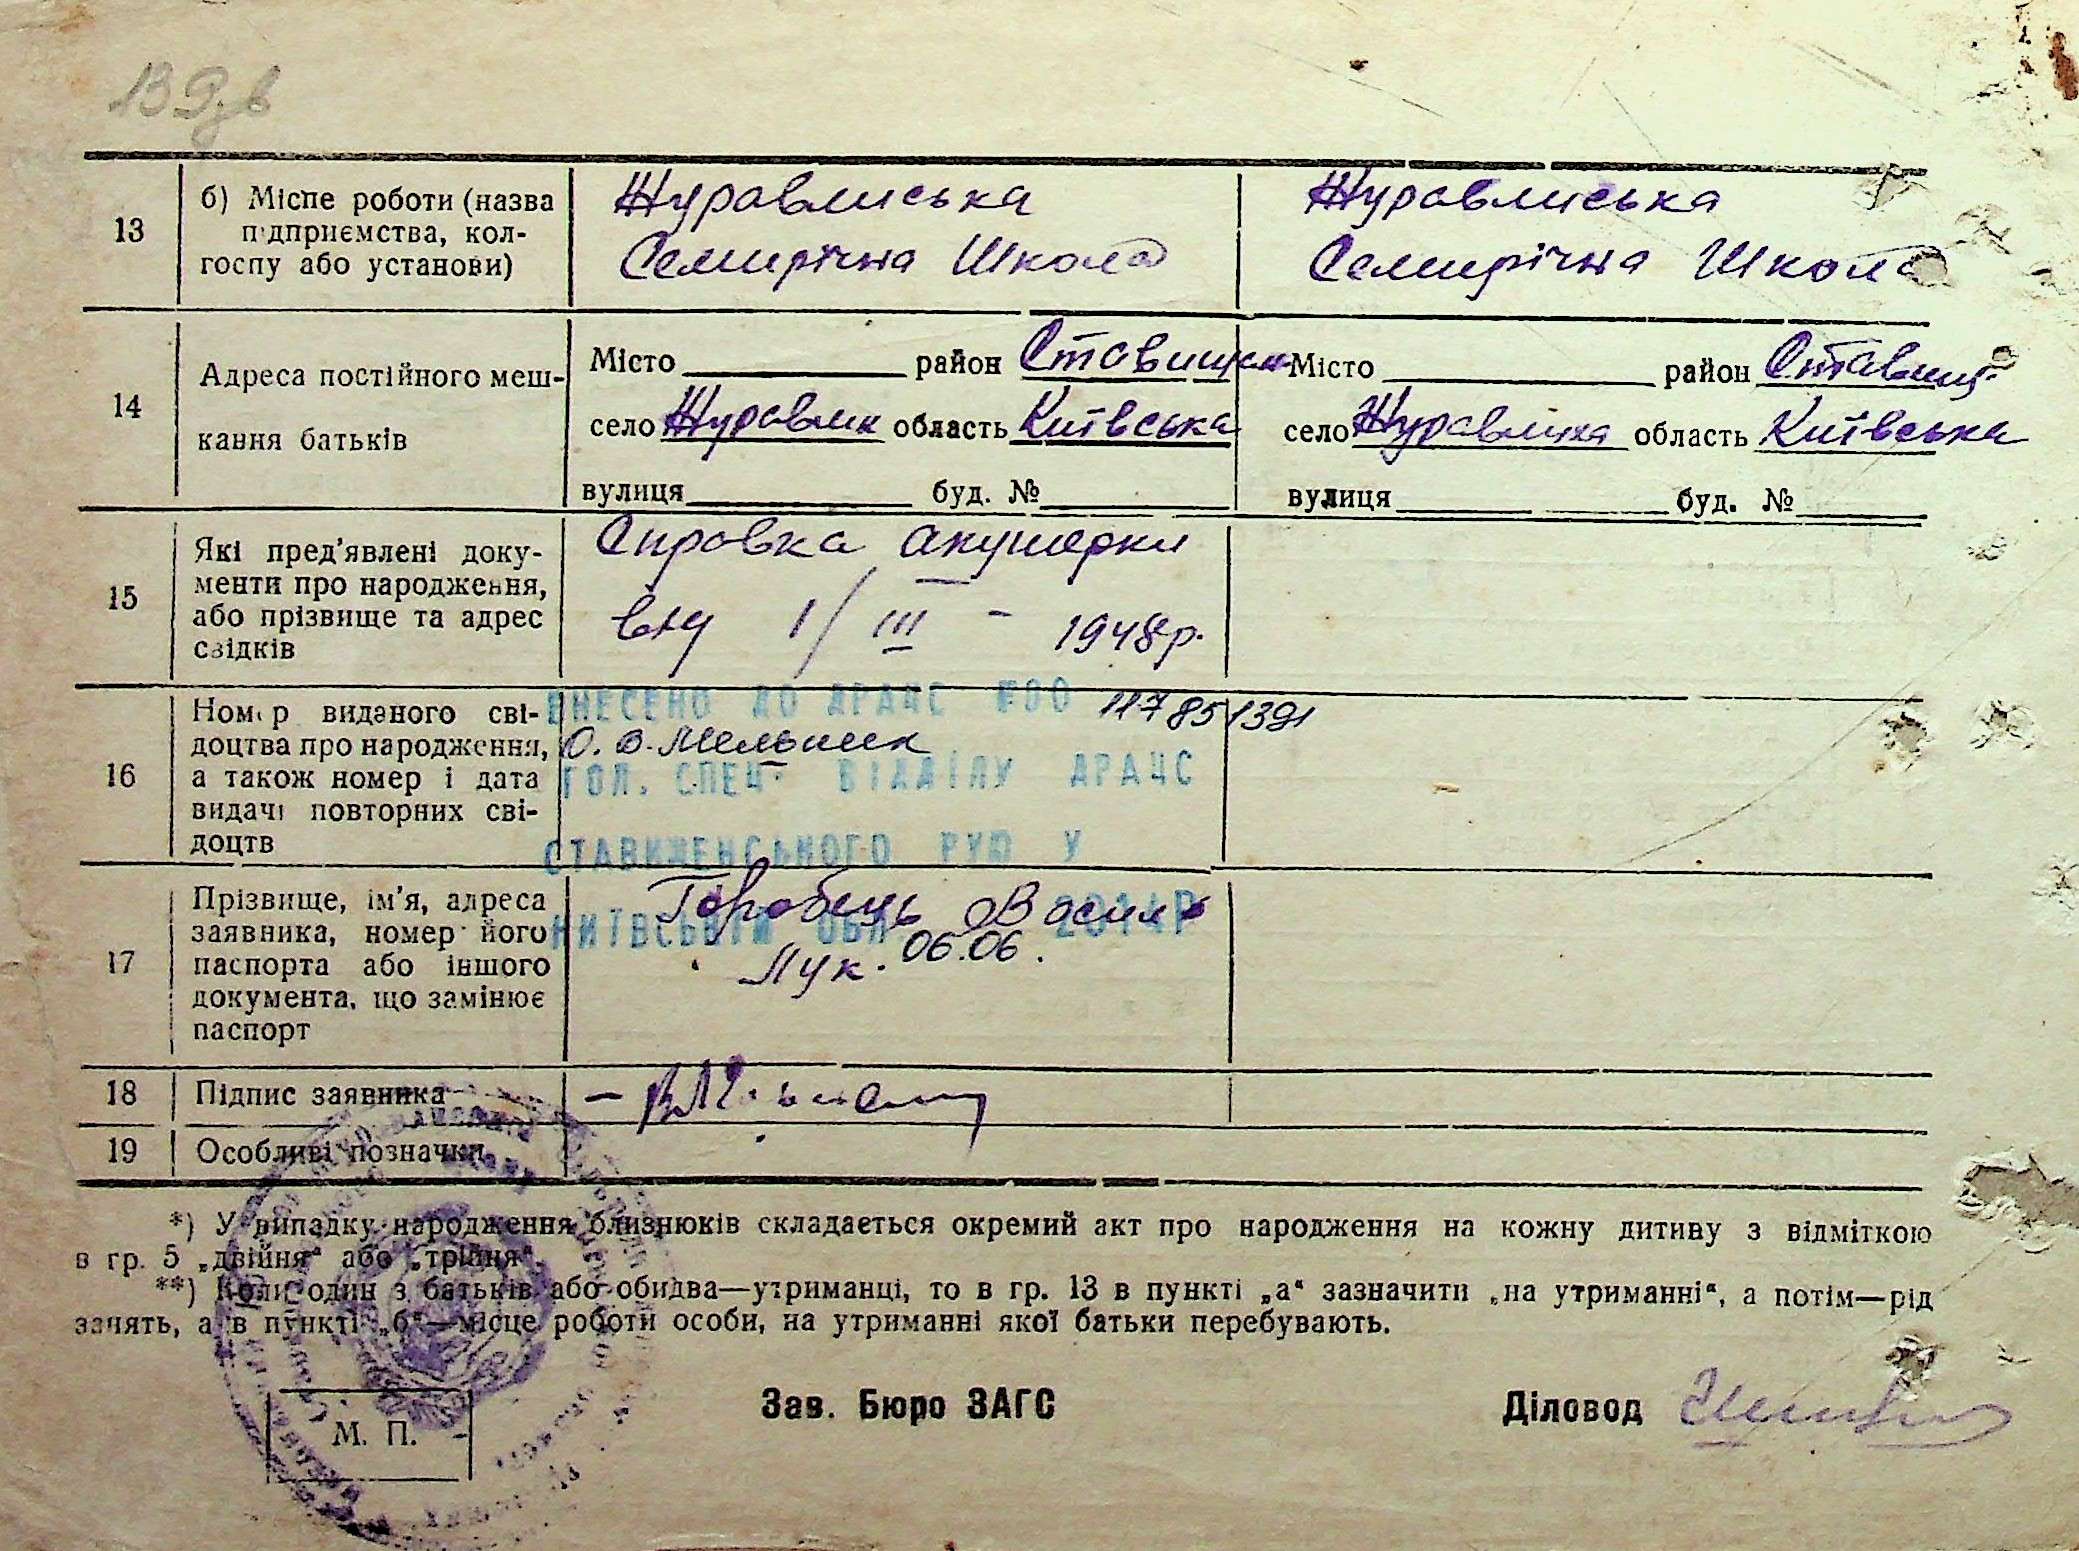 13
б) Місце роботи (назва
підприємства, кол-
госпу або установи)
Журавлиська
Семирічна Школа
Журавлиська
Семирічна Школа
14
Адреса постійного меш-
кання батьків
Місто район Ставищен
село Журавлих область Київська
вулиця буд. №
Місто район Ставищ.
село Журавлиха область Київська
вулиця буд. №
15
Які пред'явлені доку-
менти про народження,
або прізвище та адрес
свідків
Справка акушерки
від 1/III – 1948р.
16
Номер виданого сві-
доцтва про народження,
а також номер і дата
видачі повторних сві-
доцтв
ВНЕСЕНО ДО ДРАЦС №00 117851391
О. В. Мельник
ГОЛ. СПЕЦ. ВІДДІЛУ ДРАЦС
СТАВИЩЕНСЬКОГО РУЮ У
КИЇВСЬКІЙ ОБЛ 06.06. 2014Р
17
Прізвище, ім'я, адреса
заявника, номер його
паспорта або іншого
документа, що замінює
паспорт
Горобець Василь
Лук.
18
Підпис заявника
19
Особливі позначки
*) У випадку народження близнюків складається окремий акт про народження на кожну дитину з відміткою
в гр. 5 „двійня“ або „трійня“.
**) Коли один з батьків або обидва—утриманці, то в гр. 13 в пункті „а“ зазначити „на утриманні“, а потім—рід
занять, а в пункті „б“—місце роботи особи, на утриманні якої батьки перебувають.
М. П.
Зав. Бюро ЗАГС
Діловод